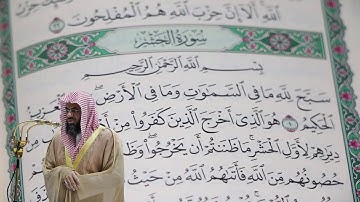 ٱللَّهِ أَلَآ إِنَّ حِزْبَ ٱللَّهِ هُمُ ٱلْمُفْلِحُونَ
سُورَةُ الحَشْرِ
بِسْمِ ٱللَّهِ ٱلرَّحْمَٰنِ ٱلرَّحِيمِ
سَبَّحَ لِلَّهِ مَا فِى ٱلسَّمَٰوَٰتِ وَمَا فِى ٱلْأَرْضِ
ٱلْحَكِيمُ ١ هُوَ ٱلَّذِىٓ أَخْرَجَ ٱلَّذِينَ كَفَرُوا۟ مِنْ
دِيَٰرِهِمْ لِأَوَّلِ ٱلْحَشْرِ مَا ظَنَنتُمْ أَن يَخْرُجُوا۟ وَظَنُّوٓا۟
حُصُونُهُم مِّنَ ٱللَّهِ فَأَتَىٰهُمُ ٱللَّهُ مِنْ حَيْثُ